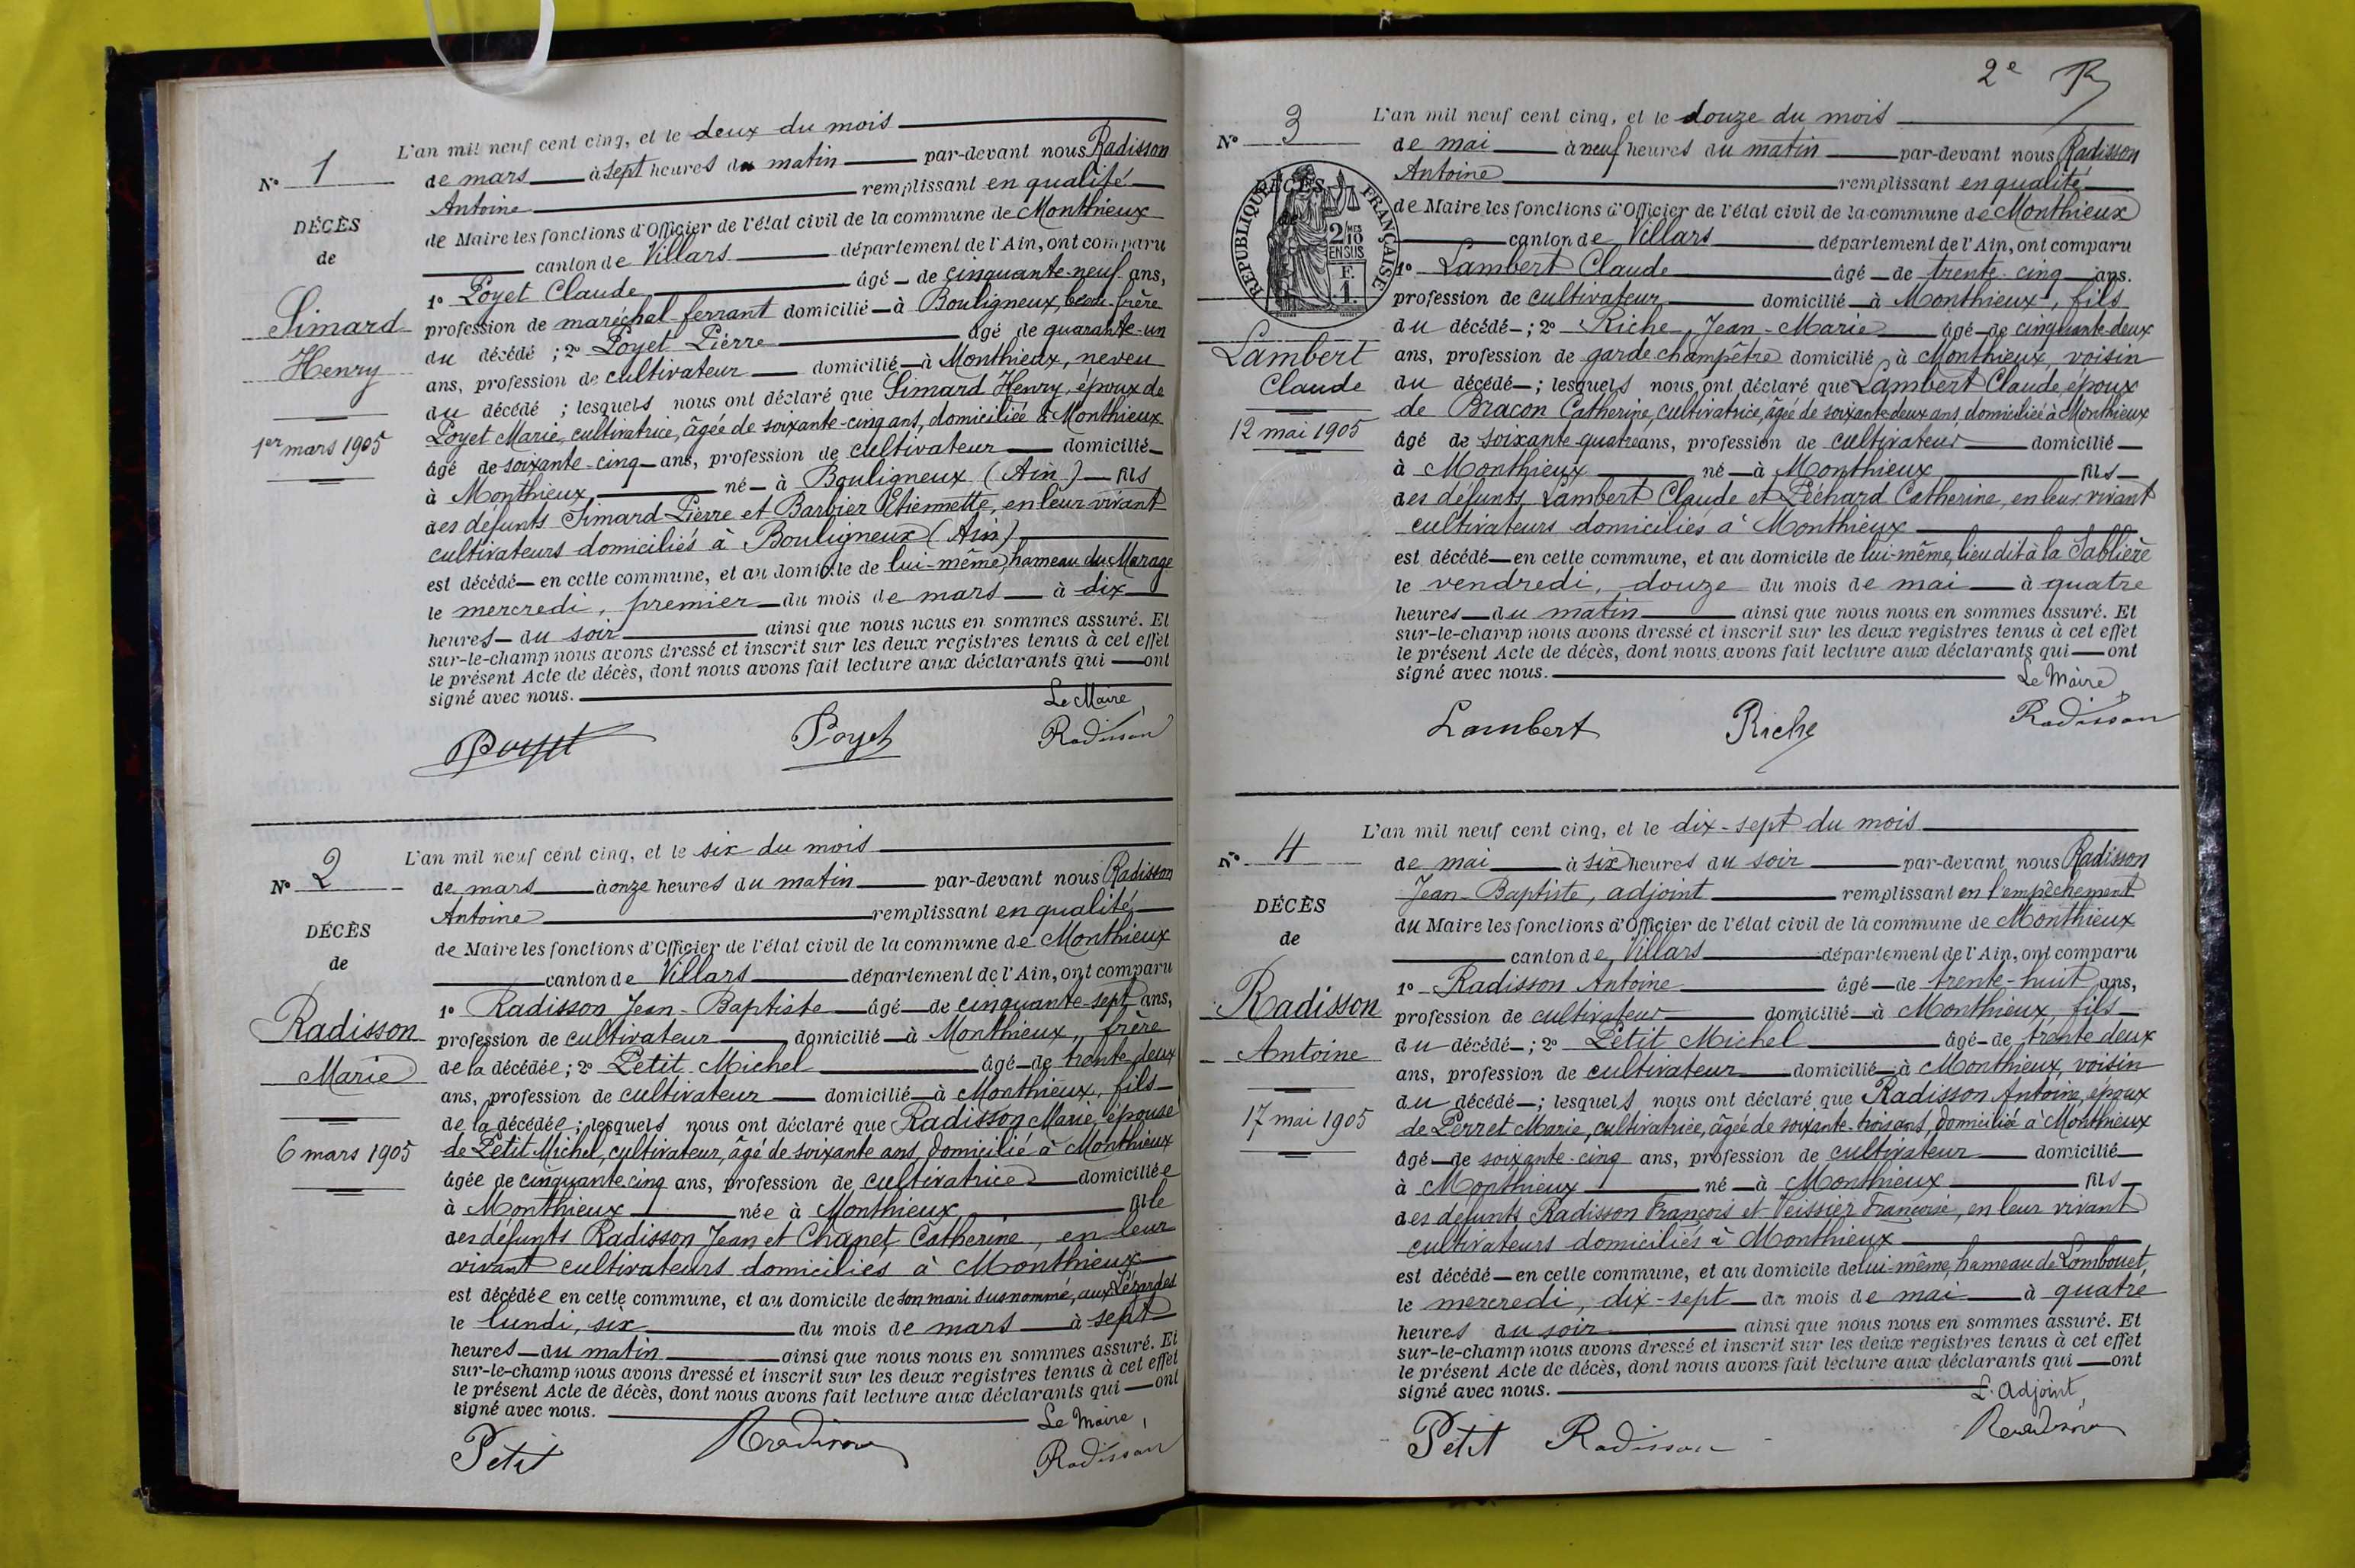 N° 1
DÉCÈS
de
Simard
Henry
1er mars 1905
L'an mil neuf cent cinq, et le deux du mois
de mars à sept heures du matin par-devant nous Radisson
Antoine remplissant en qualité
de Maire les fonctions d'Officier de l'état civil de la commune de Monthieux
canton de Villars département de l'Ain, ont comparu
1° Poyet Claude âgé de cinquante-neuf ans,
profession de maréchal-ferrant domicilié à Bouligneux, beau-frère
du décédé ; 2° Poyet Pierre âgé de quarante-un
ans, profession de cultivateur domicilié à Monthieux, neveu
du décédé ; lesquels nous ont déclaré que Simard Henry, époux de
Poyet Marie, cultivatrice, âgée de soixante-cinq ans, domiciliée à Monthieux
âgé de soixante-cinq ans, profession de cultivateur domicilié
à Monthieux, né à Bouligneux (Ain) fils
des défunts Simard Pierre et Barbier Etiennette, en leur vivant
cultivateurs domiciliés à Bouligneux (Ain)
est décédé en cette commune, et au domicile de lui-même, hameau du Marage
le mercredi, premier du mois de mars à dix
heures du soir ainsi que nous nous en sommes assuré. Et
sur-le-champ nous avons dressé et inscrit sur les deux registres tenus à cet effet
le présent Acte de décès, dont nous avons fait lecture aux déclarants qui ont
signé avec nous.
Le Maire,
Poyet Poyet Radisson
N° 2
DÉCÈS
de
Radisson
Marie
6 mars 1905
L'an mil neuf cent cinq, et le six du mois
de mars à onze heures du matin par-devant nous Radisson
Antoine remplissant en qualité
de Maire les fonctions d'Officier de l'état civil de la commune de Monthieux
canton de Villars département de l'Ain, ont comparu
1° Radisson Jean-Baptiste âgé de cinquante-sept ans,
profession de cultivateur domicilié à Monthieux, frère
de la décédée ; 2° Petit Michel âgé de trente deux
ans, profession de cultivateur domicilié à Monthieux, fils
de la décédée ; lesquels nous ont déclaré que Radisson Marie, épouse
de Petit Michel, cultivateur, âgé de soixante ans, domicilié à Monthieux
âgée de cinquante cinq ans, profession de cultivatrice domiciliée
à Monthieux née à Monthieux fille
des défunts Radisson Jean et Chanet Catherine, en leur
vivant cultivateurs domiciliés à Monthieux
est décédée en cette commune, et au domicile de son mari susnommé, aux Lézardes
le lundi, six du mois de mars à sept
heures du matin ainsi que nous nous en sommes assuré. Et
sur-le-champ nous avons dressé et inscrit sur les deux registres tenus à cet effet
le présent Acte de décès, dont nous avons fait lecture aux déclarants qui ont
signé avec nous.
Le Maire,
Petit Radisson Radisson
2e R
N° 3
DÉCÈS
RÉPUBLIQUE FRANÇAISE
2/10 MES
EN SUS
F.
1.
Lambert
Claude
12 mai 1905
L'an mil neuf cent cinq, et le douze du mois
de mai à neuf heures du matin par-devant nous Radisson
Antoine remplissant en qualité
de Maire les fonctions d'Officier de l'état civil de la commune de Monthieux
canton de Villars département de l'Ain, ont comparu
1° Lambert Claude âgé de trente-cinq ans.
profession de cultivateur domicilié à Monthieux, fils
du décédé ; 2° Riche Jean-Marie âgé de cinquante-deux
ans, profession de garde champêtre domicilié à Monthieux, voisin
du décédé ; lesquels nous ont déclaré que Lambert Claude, époux
de Bracon Catherine, cultivatrice, âgée de soixante-deux ans, domiciliée à Monthieux
âgé de soixante-quatre ans, profession de cultivateur domicilié
à Monthieux né à Monthieux fils
des défunts Lambert Claude et Péchard Catherine, en leur vivant
cultivateurs domiciliés à Monthieux
est décédé en cette commune, et au domicile de lui-même, lieu dit à la Sablière
le vendredi, douze du mois de mai à quatre
heures du matin ainsi que nous nous en sommes assuré. Et
sur-le-champ nous avons dressé et inscrit sur les deux registres tenus à cet effet
le présent Acte de décès, dont nous avons fait lecture aux déclarants qui ont
signé avec nous.
Le Maire,
Lambert Riche Radisson
N° 4
DÉCÈS
de
Radisson
Antoine
17 mai 1905
L'an mil neuf cent cinq, et le dix-sept du mois
de mai à six heures du soir par-devant nous Radisson
Jean-Baptiste, adjoint remplissant en l'empêchement
du Maire les fonctions d'Officier de l'état civil de la commune de Monthieux
canton de Villars département de l'Ain, ont comparu
1° Radisson Antoine âgé de trente-huit ans,
profession de cultivateur domicilié à Monthieux, fils
du décédé ; 2° Petit Michel âgé de trente deux
ans, profession de cultivateur domicilié à Monthieux, voisin
du décédé ; lesquels nous ont déclaré que Radisson Antoine, époux
de Perret Marie, cultivatrice, âgée de soixante-trois ans, domiciliée à Monthieux
âgé de soixante-cinq ans, profession de cultivateur domicilié
à Monthieux né à Monthieux fils
des défunts Radisson François et Veissier Françoise, en leur vivant
cultivateurs domiciliés à Monthieux
est décédé en cette commune, et au domicile de lui-même, hameau de Lombouet,
le mercredi, dix-sept du mois de mai à quatre
heures du soir ainsi que nous nous en sommes assuré. Et
sur-le-champ nous avons dressé et inscrit sur les deux registres tenus à cet effet
le présent Acte de décès, dont nous avons fait lecture aux déclarants qui ont
signé avec nous.
L'adjoint,
Petit Radisson Radisson